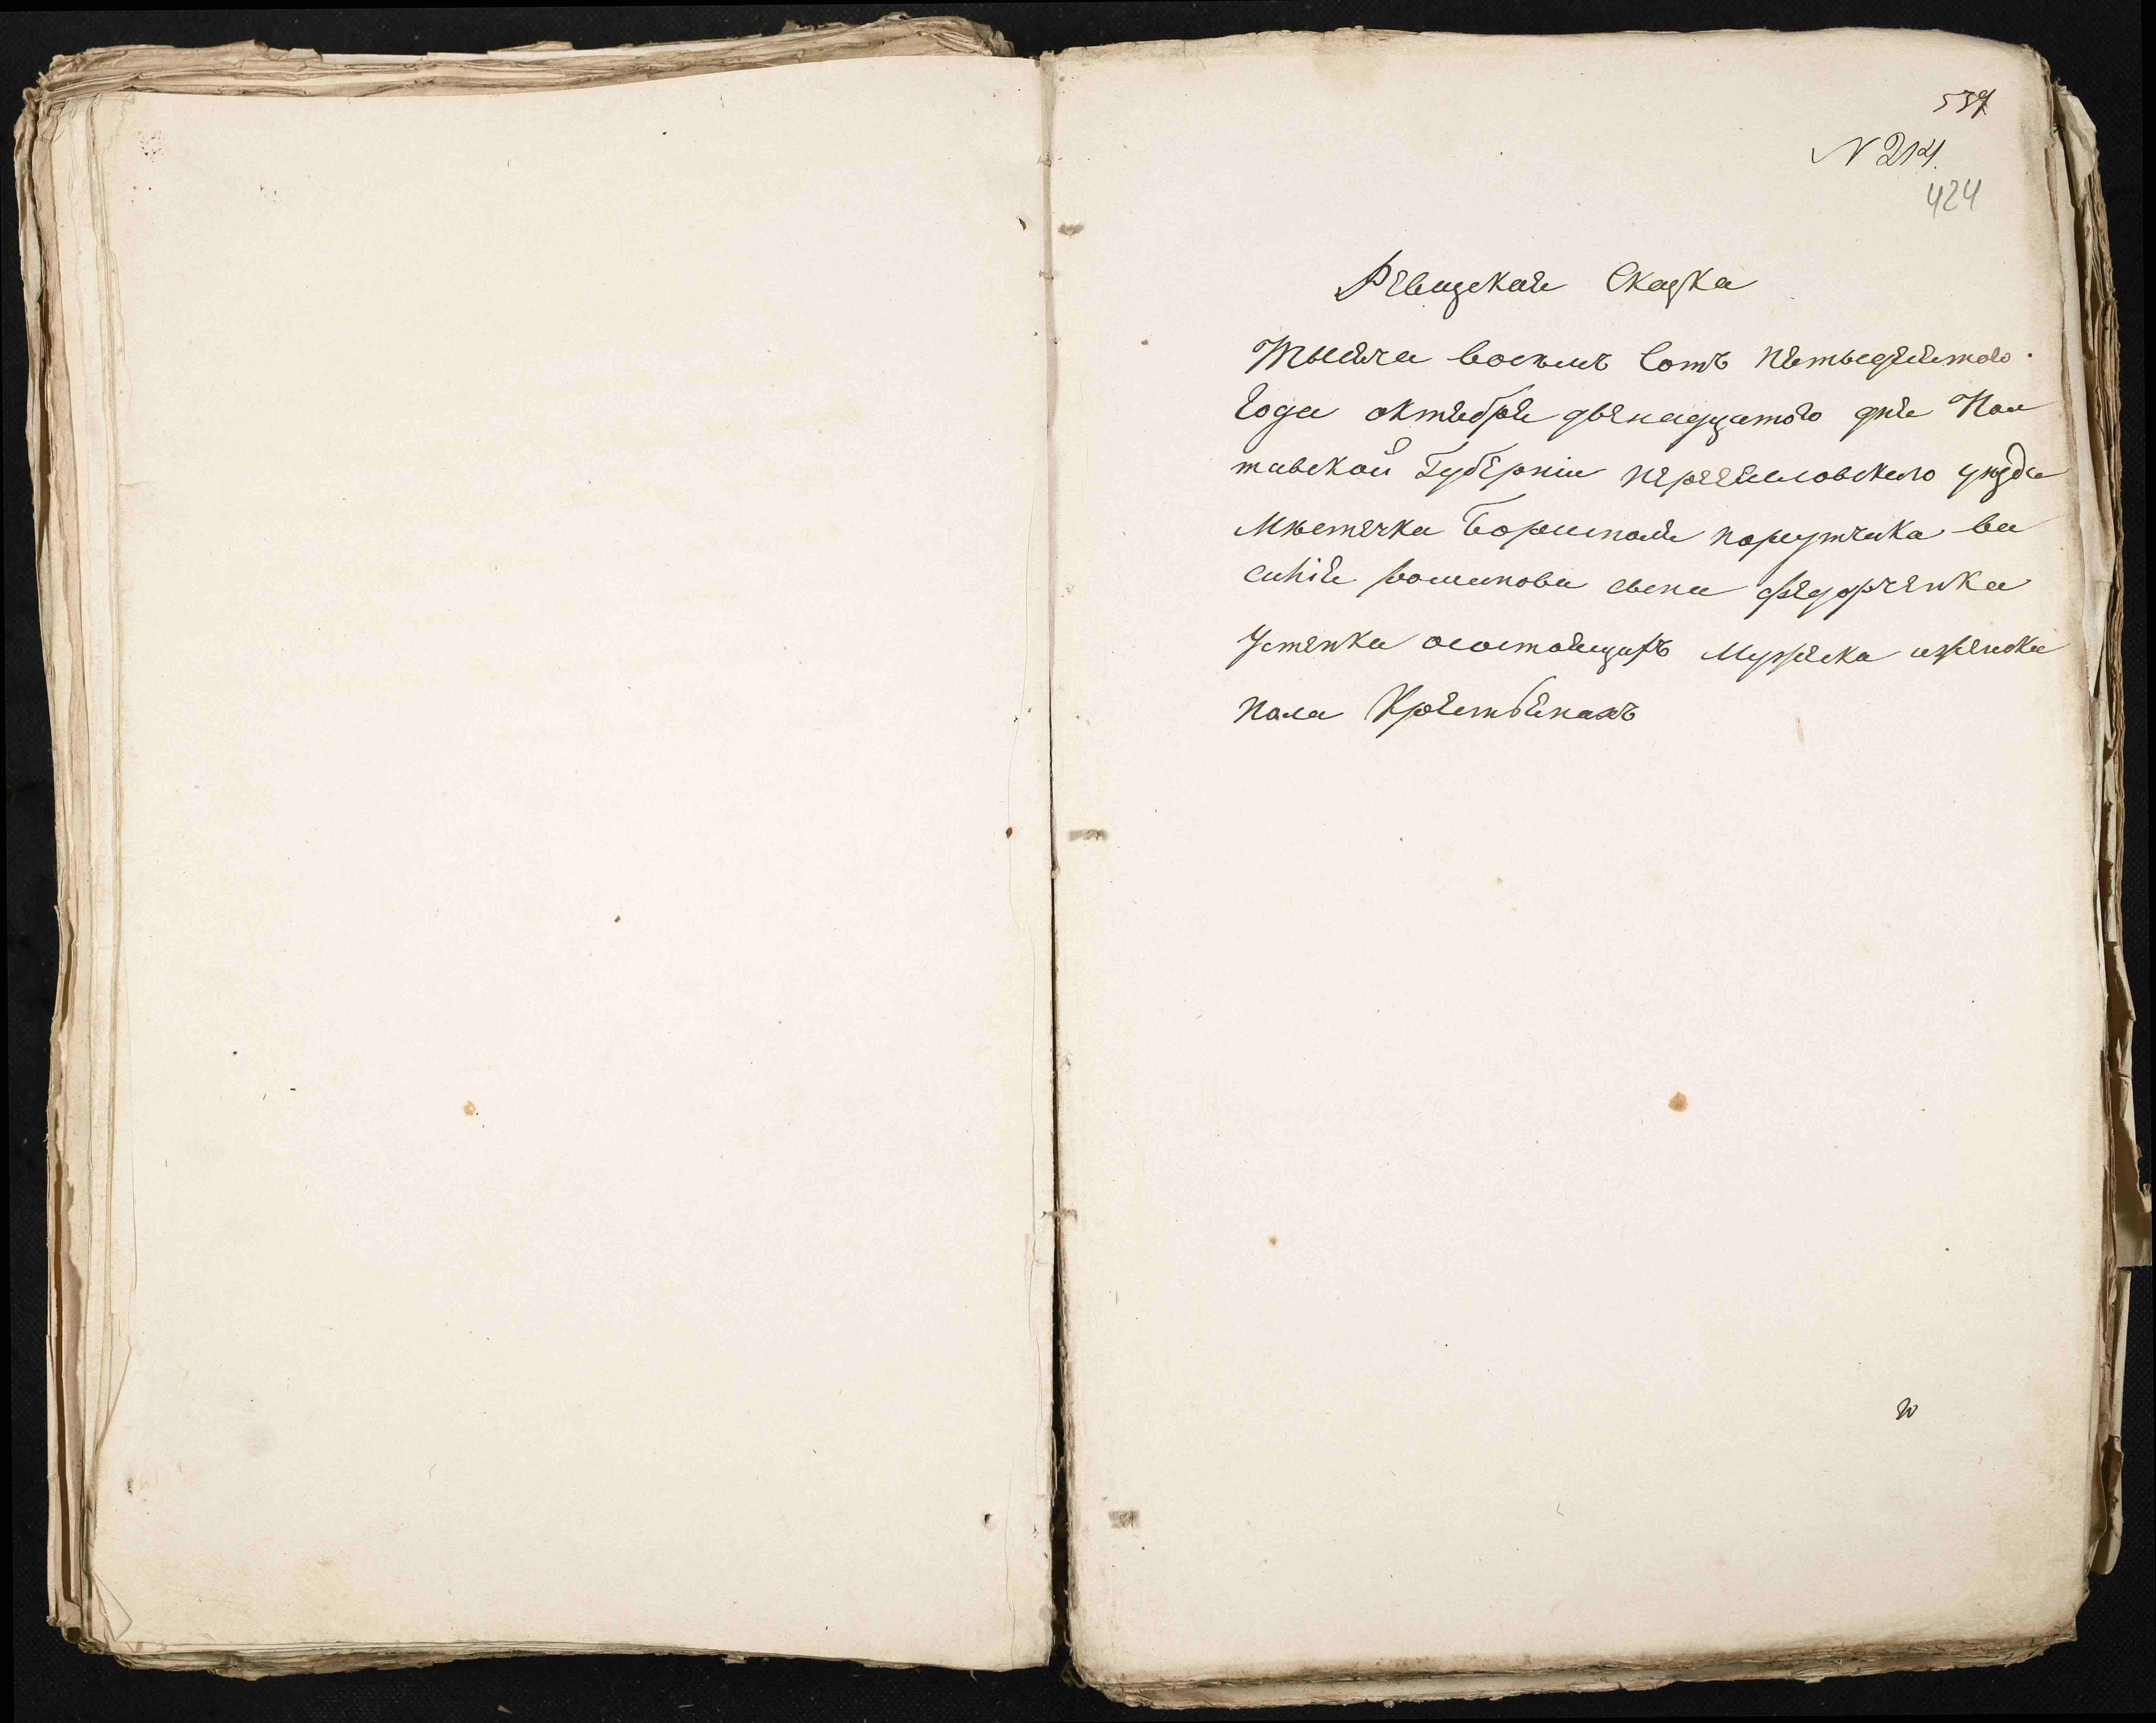 537
N 214.
424
Ревизская Сказка
Тысяча восемь Сотъ пятьедесятого
года октября двенадцатого дня Пол
тавской Губерніи переясловского уезда
Мѣстечка Бориспол порутчика ва
силія сына федорченка
о состоящихъ Мужеска и женска
пола Крестьянахъ